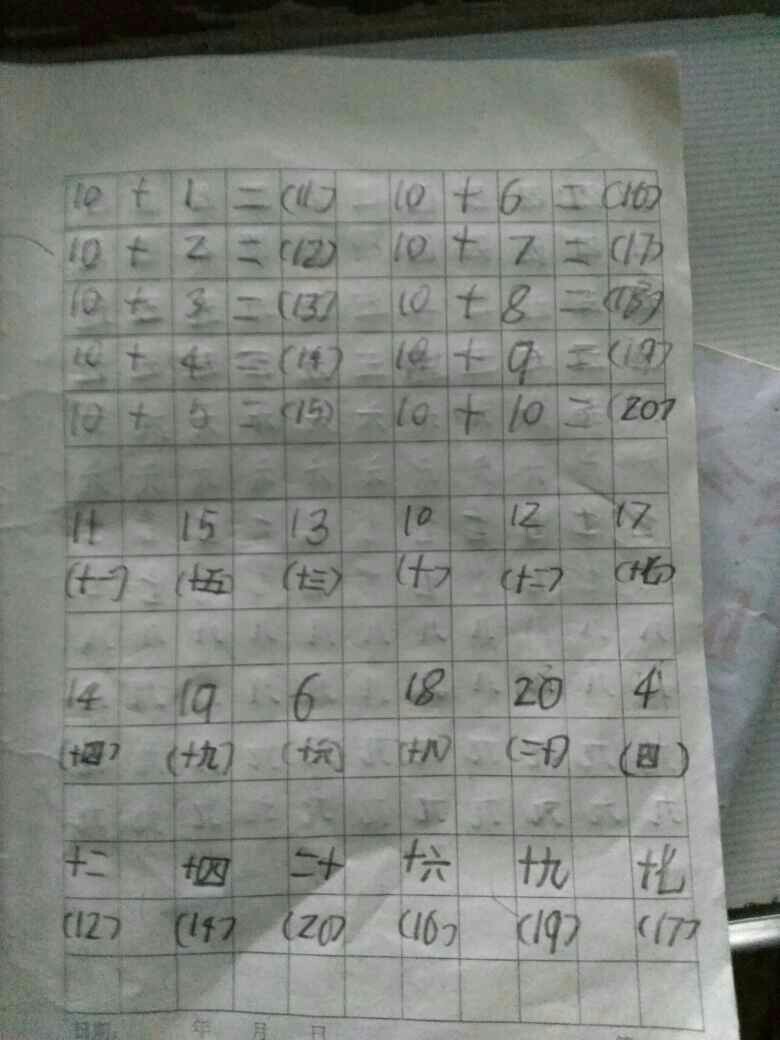 10 + 1 = (11) 10 + 6 = (16)
10 + 2 = (12) 10 + 7 = (17)
10 + 3 = (13) 10 + 8 = (18)
10 + 4 = (14) 10 + 9 = (19)
10 + 5 = (15) 10 + 10 = (20)
11 15 13 10 12 17
(十一) (十五) (十三) (十) (十二) (十七)
14 19 6 18 20 4
(十四) (十九) (十六) (十八) (二十) (四)
十二 十四 二十 十六 十九 十七
(12) (14) (20) (16) (19) (17)
日期: 年 月 日